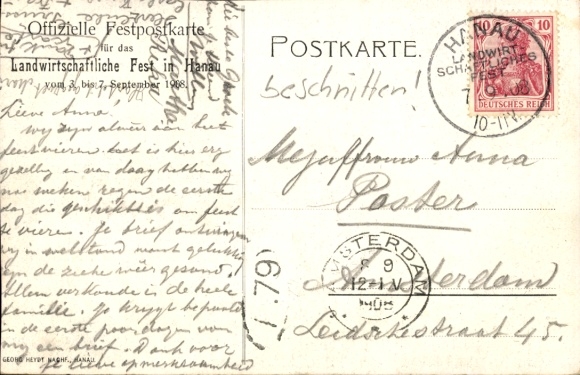 Offizielle Festpostkarte
für das
Landwirtschaftliche Fest in Hanau
vom 3. bis 7. September 1908.
Lieve Anna!
Wy zyn alweer aan het
feestvieren. Het is hier erg
gezellig en van daag hebben wy
na weken regen de eerste
dag die geschikt is om feest
te vieren. Je brief ontvingen
wy in welstand want gelukkig
zyn de zieken weer gezond.
Allen verkouden in de heele
familie. Je krygt bepaald
in de eerste paar dagen van
my een brief. Dank voor
je lieve opmerkzaamheid
GEORG HEYDT NACHF., HANAU.
POSTKARTE.
beschnitten!
10 10
DEUTSCHES REICH
HANAU
LANDWIRT
SCHAFTLICHES
FEST
7 9 08
10-11V.
Mejuffrouw Anna
Poster
Amsterdam
Leidschestraat 45.
AMSTERDAM
8 9
12-1 N
1908
1.79